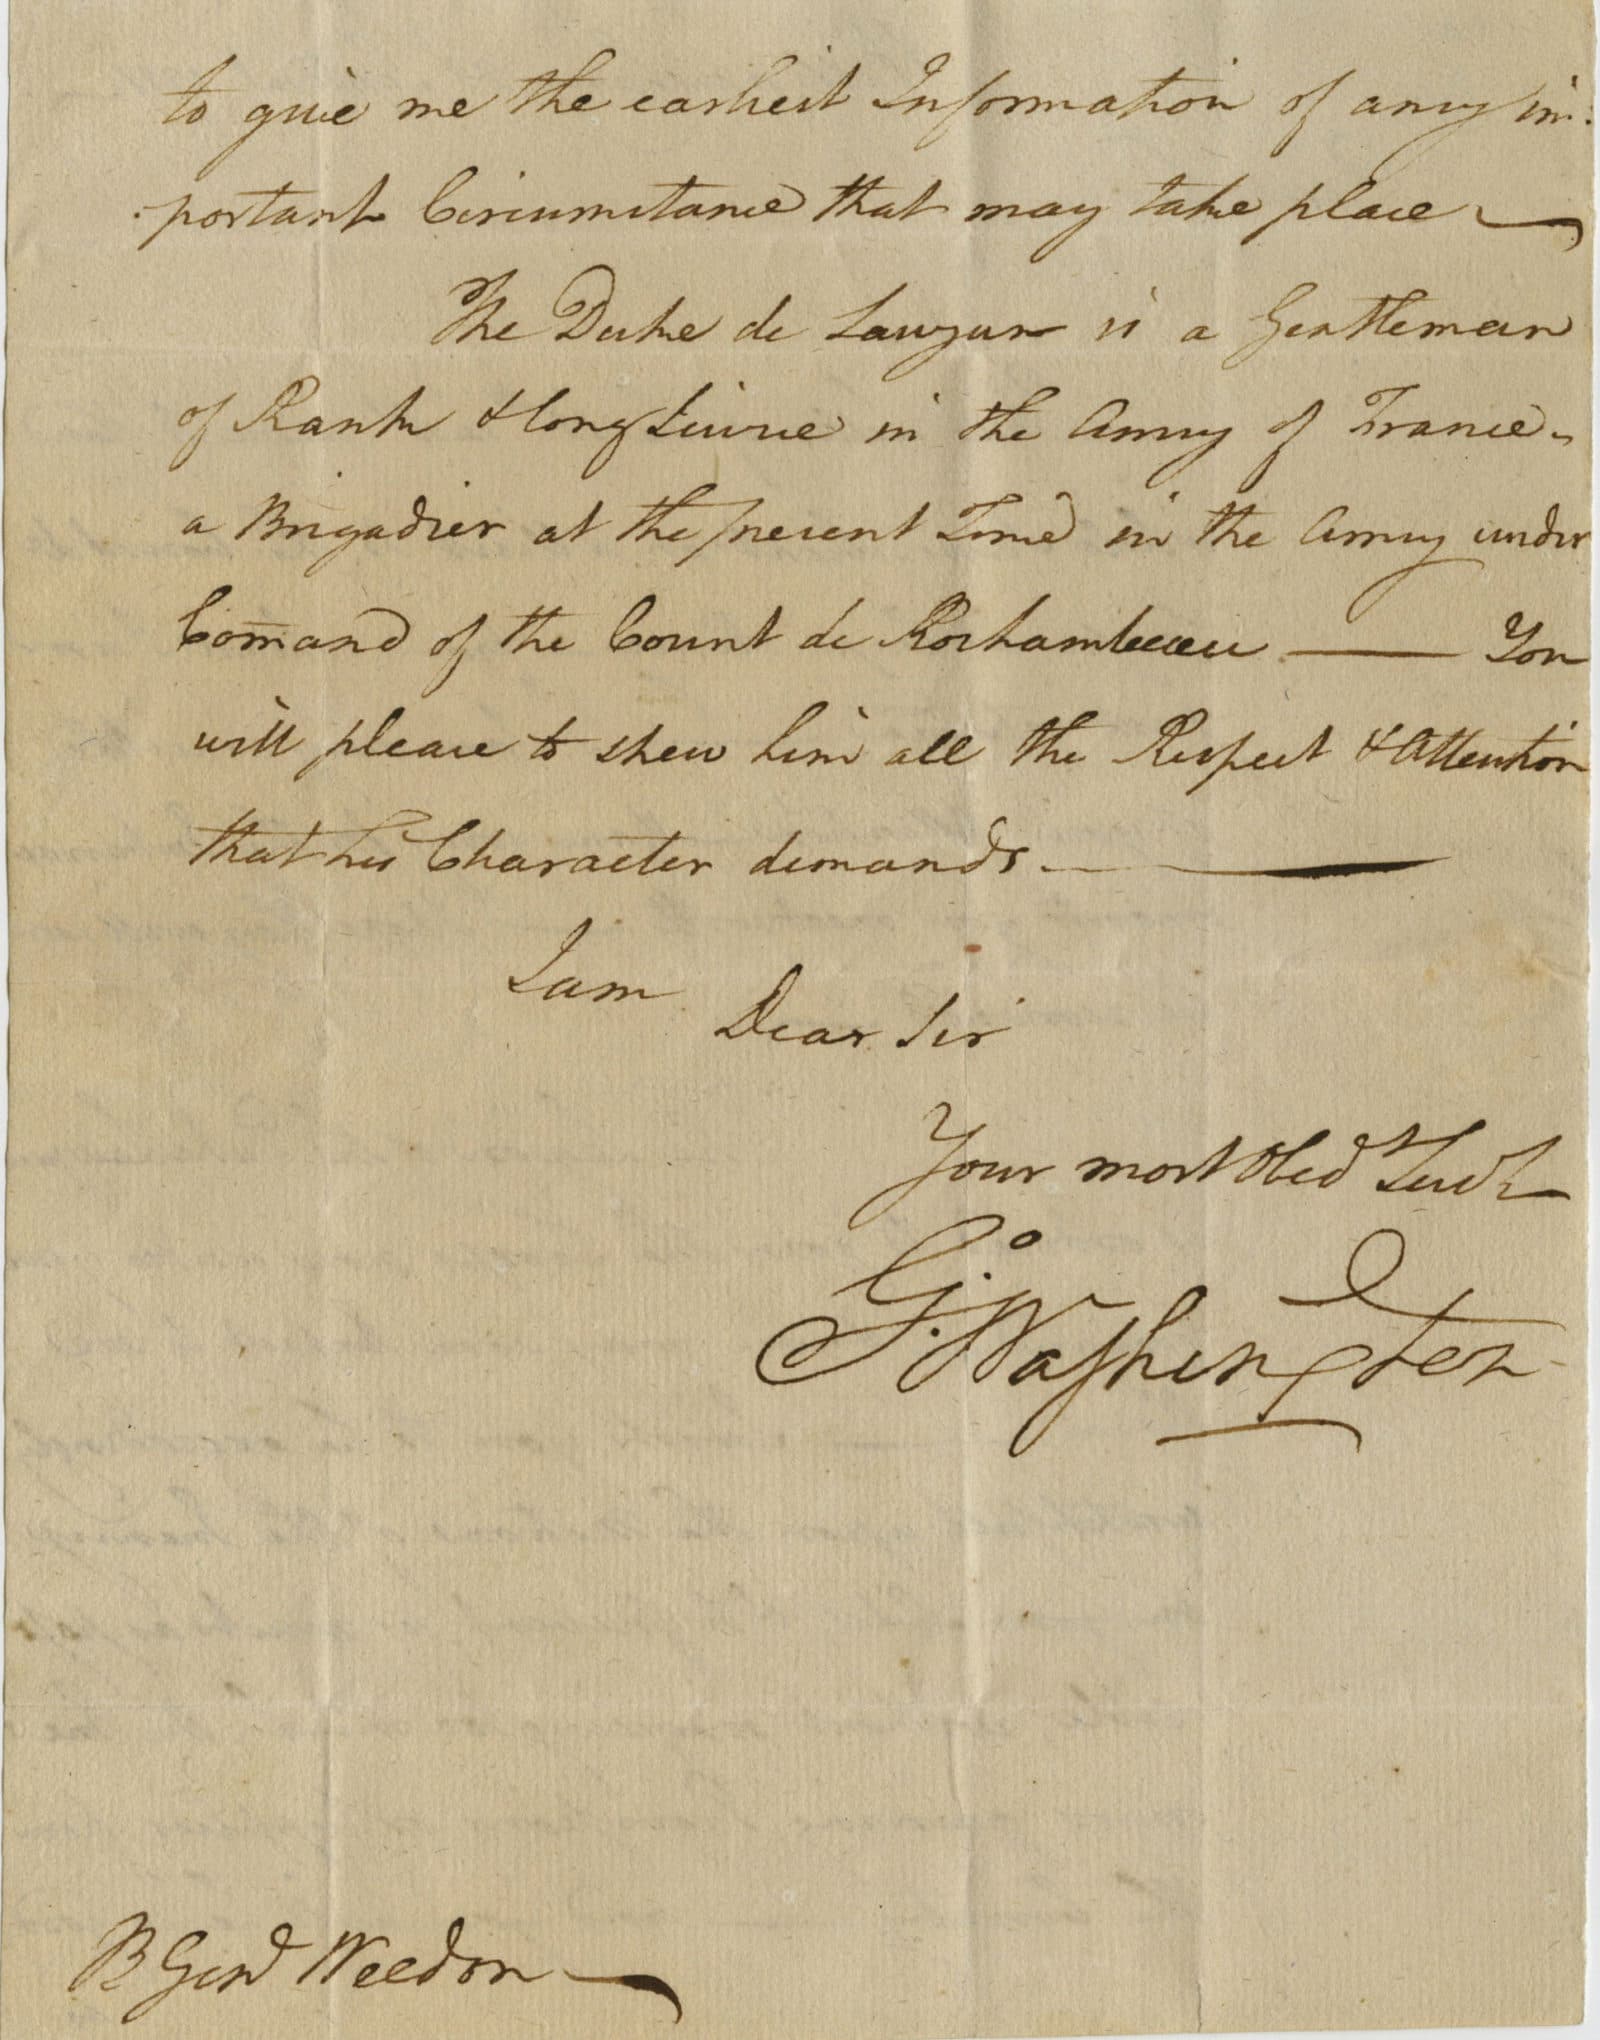 to give me the earliest Information of any im:
:portant Circumstance that may take place
The Duke de Lauzun is a Gentleman
of Rank & long Service in the Army of France.
a Brigadier at the present Time in the Army under
Com̄and of the Count de Rochambeau — You
will please to shew him all the Respect & Attention
that his Character demands. —
I am
Dear Sir
Your most Obed Servt
Go: Washington
B Genl Weedon